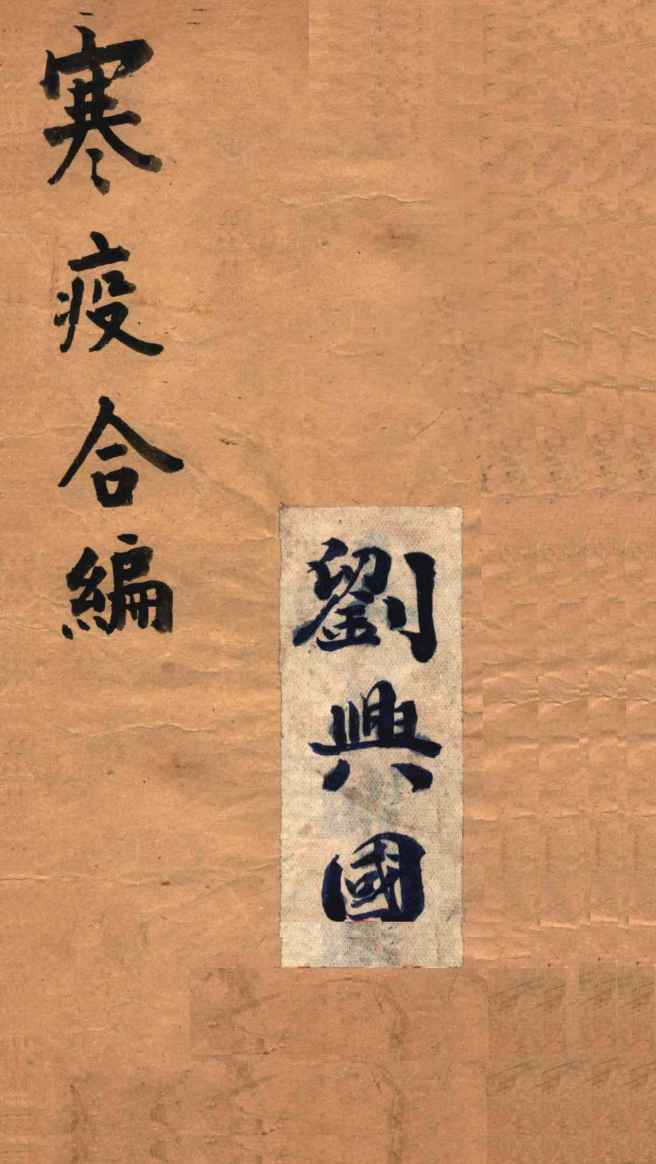 寒疫合編
劉興國